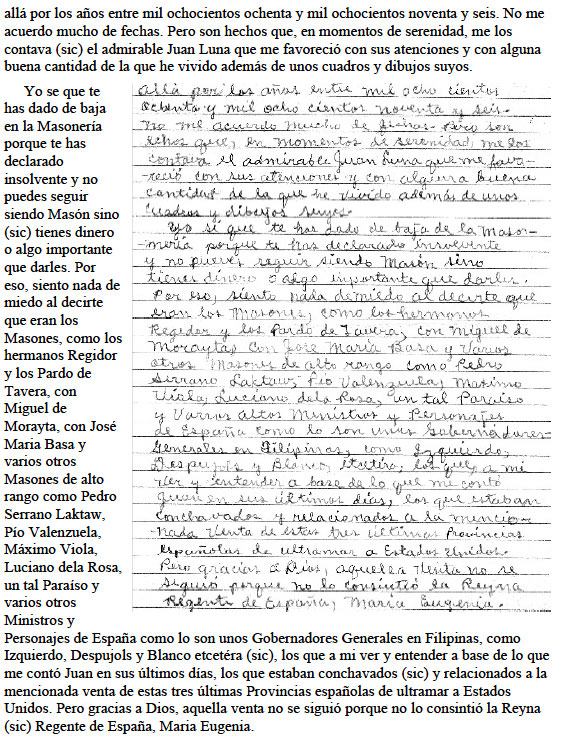 allá por los años entre mil ochocientos ochenta y mil ochocientos noventa y seis. No me
acuerdo mucho de fechas. Pero son hechos que, en momentos de serenidad, me los
contava (sic) el admirable Juan Luna que me favoreció con sus atenciones y con alguna
buena cantidad de la que he vivido además de unos cuadros y dibujos suyos.
Yo se que te
has dado de baja
en la Masonería
porque te has
declarado
insolvente y no
puedes seguir
siendo Masón sino
(sic) tienes dinero
o algo importante
que darles. Por
eso, siento nada de
miedo al decirte
que eran los
Masones, como los
hermanos Regidor
y los Pardo de
Tavera, con
Miguel de
Morayta, con José
Maria Basa y
varios otros
Masones de alto
rango como Pedro
Serrano Laktaw,
Pío Valenzuela,
Máximo Viola,
Luciano dela Rosa,
un tal Paraíso y
varios otros
Ministros y
Personajes de España como lo son unos Gobernadores Generales en Filipinas, como
Izquierdo, Despujols y Blanco etcetéra (sic), los que a mi ver y entender a base de lo que
me contó Juan en sus últimos días, los que estaban conchavados (sic) y relacionados a la
mencionada venta de estas tres últimas Provincias españolas de ultramar a Estados
Unidos. Pero gracias a Dios, aquella venta no se siguió porque no lo consintió la Reyna
(sic) Regente de España, Maria Eugenia.
allá por los años entre mil ocho cientos
ochenta y mil ocho cientos noventa y seis.
No me acuerdo mucho de fechas. Pero son
echos que, en momentos de serenidad, me los
contava el admirable Juan Luna que me favo-
reció con sus atenciones y con alguna buena
cantidad de la que he vivido además de unos
cuadros y dibujos suyos.
Yo sé que te has dado de baja de la Mason-
mería porque te has declarado insolvente
y no puedes seguir siendo Masón sino
tienes dinero o algo importante que darles.
Por eso, siento nada de miedo al decirte que
eran los Masones, como los hermanos
Regidor y los Pardo de Tavera, con Miguel de
Morayta, con José María Basa y Varios
otros Masones de alto rango como Pedro
Serrano Laktaw, Pio Valenzuela, Maximo
Viola, Luciano dela Rosa, un tal Paraiso
y Varios altos Ministros y Personajes
de España como lo son unos Gobernadores
Generales en Filipinas, como Izquierdo,
Despujols y Blanco, etcétera, los que, a mi
ver y entender a base de lo que me contó
Juan en sus últimos días, los que estaban
conchavados y relacionados a la mencio-
nada Venta de estas tres últimas Provincias
españolas de ultramar a Estados Unidos.
Pero gracias a Dios, aquella Venta no se
siguió porque no lo consintió la Reyna
Regente de España, María Eugenia.